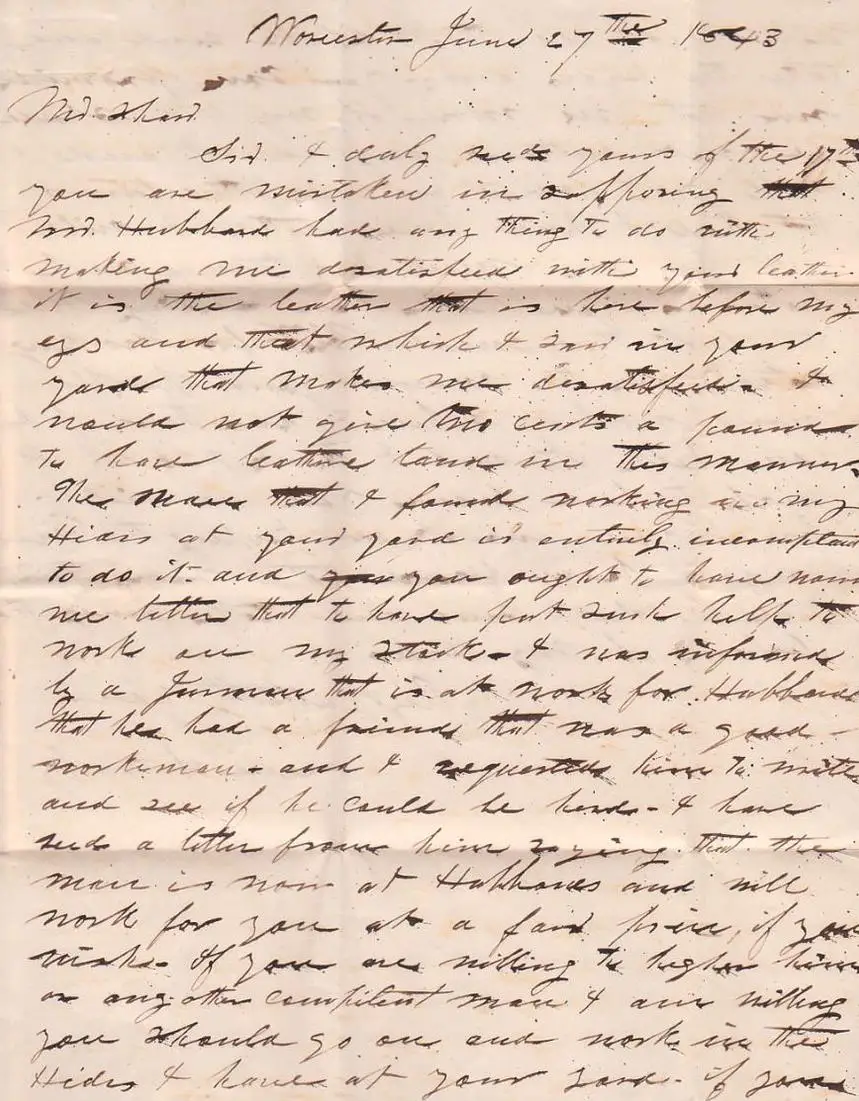 Worcester June 27th 1843
Mr. Shaw
Sir. I duly recd yours of the 17th
you are mistaken in supposing that
Mr. Hubbard had any thing to do with
making me desatisfeed with your leather
it is the leather that is here before my
eys and that which I saw in your
yard that makes me desatisfeed - I
would not give two cents a pound
to have leather tand in this manner
The man that I found working in my
Hides at your yard is entirely incompitant
to do it - and you you ought to have nown
me better that to have put such help to
work on my stock - I was informed
by a Jurman that is at work for Hubbard
that he had a friend that was a good -
workman - and I requested him to write
and see if he could be hired - I have
recd a letter from him saying that the
man is now at Hubbards and will
work for you at a fair price, if you
wish - If you are willing to higher him
or any other compitent man I am willing
you should go on and work in the
Hides I have at your yard - if you